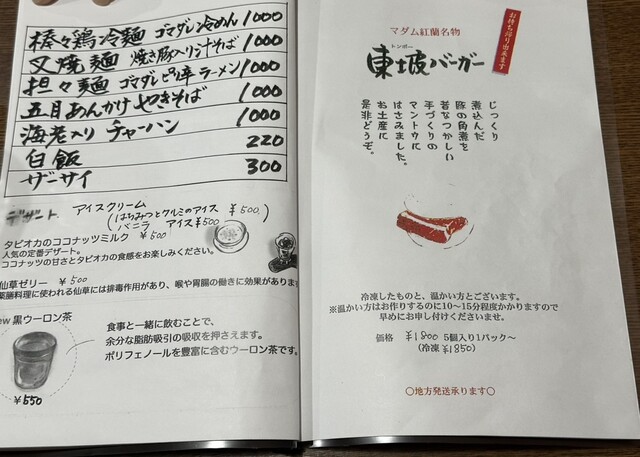 棒々鶏冷麺 ゴマダレ冷めん 1000
叉焼麺 焼き豚入り汁そば 1000
担々麺 ゴマダレピリ辛ラーメン 1000
五目あんかけやきそば 1000
海老入りチャーハン 1000
白飯 220
ザーサイ 300
デザート アイスクリーム
(はちみつとクルミのアイス ¥500)
バニラ アイス ¥500
タピオカのココナッツミルク ¥500
人気の定番デザート。
ココナッツの甘さとタピオカの食感をお楽しみください。
仙草ゼリー ¥500
薬膳料理に使われる仙草には排毒作用があり、喉や胃腸の働きに効果があります
ew 黒ウーロン茶
食事と一緒に飲むことで、
余分な脂肪吸引の吸収を押さえます。
ポリフェノールを豊富に含むウーロン茶です。
¥550
マダム紅蘭名物
お持ち帰り出来ます
トンポー
東坡バーガー
じっくり
煮込んだ
豚の角煮を
昔なつかしい
手づくりの
マントウに
はさみました。
お土産に
是非どうぞ。
冷凍したものと、温かい方とございます。
※温かい方はお作りするのに10～15分程度かかりますので
早めにお申し付けくださいませ。
価格 ¥1800 5個入り1パック～
(冷凍 ¥1850)
〇地方発送承ります〇